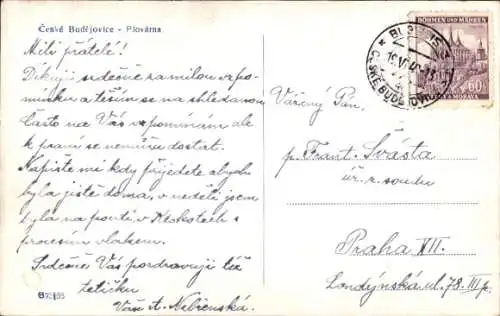 České Budějovice - Plovárna
Milí přátelé!
Děkuji srdečně za milou vzpo-
mínku a těším se na shledanou
často na Vás vzpomínám ale
k psaní se nemůžu dostat.
Napište mi kdy přijedete abych
byla jistě doma, v neděli jsem
byla na pouti v
procesím vlakem.
Srdečně Vás pozdravuji též
tetičku
Vaše A. Nebřenská.
BÖHMEN UND MÄHREN
60
Vážený Pan,
p. Frant. Švásta
úř. r. soudu
Praha XII.
Londýnská ul. 78. III p.